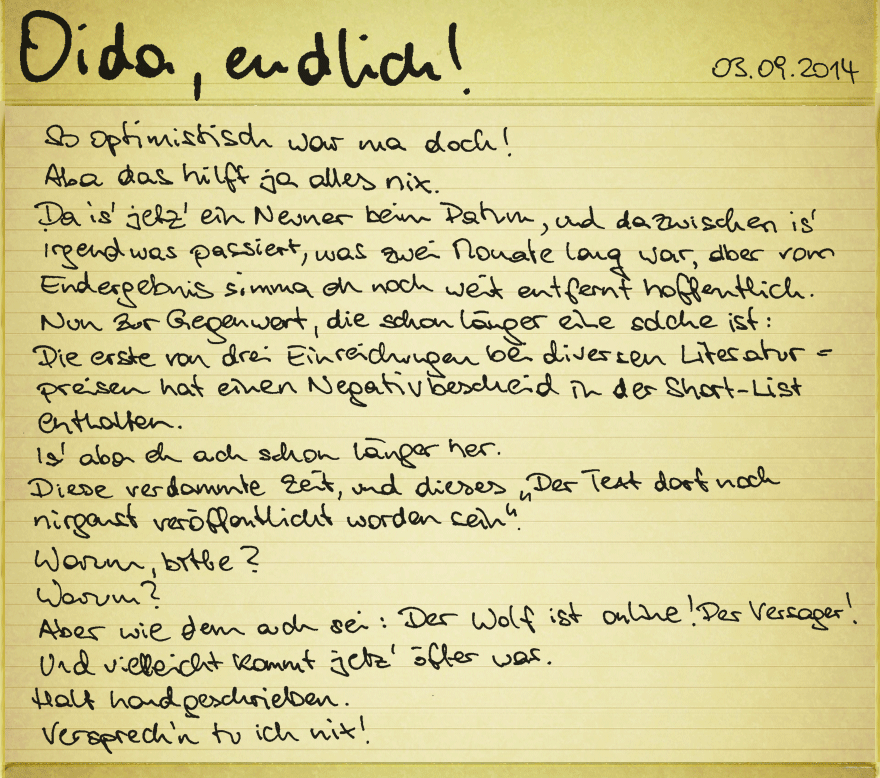 Oida, endlich!
03.09.2014
So optimistisch war ma doch!
Aba das hilft ja alles nix.
Da is' jetz' ein Neuner beim Datum, und dazwischen is'
irgendwas passiert, was zwei Monate lang war, aber vom
Endergebnis simma eh noch weit entfernt hoffentlich.
Nun zur Gegenwart, die schon länger eine solche ist:
Die erste von drei Einreichungen bei diversen Literatur=
preisen hat einen Negativbescheid in der Short-List
enthalten.
Is' aba eh auch schon länger her.
Diese verdammte Zeit, und dieses „Der Text darf noch
nirganst veröffentlicht worden sein“.
Warum, bitte?
Warum?
Aber wie dem auch sei: Der Wolf ist online! Der Versager!
Und vielleicht kommt jetz' öfter was.
Halt handgeschrieben.
Versprech'n tu ich nix!